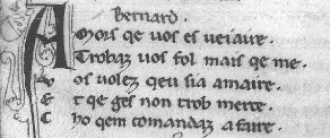 Bernard.
Amors qe uos es ueiaire.
Trobaz uos fol mais qe me.
os uolez qeu sia amaire.
Et qe ges non trob merce.
Cho qem comandaz a faire.